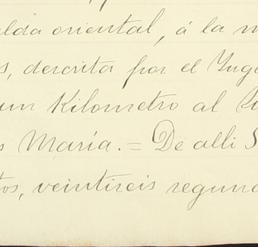 alda oriental, á la m
s, descrita por el Inge
un Kilometro al
s María.= De alli S
tos, veintiseis segund